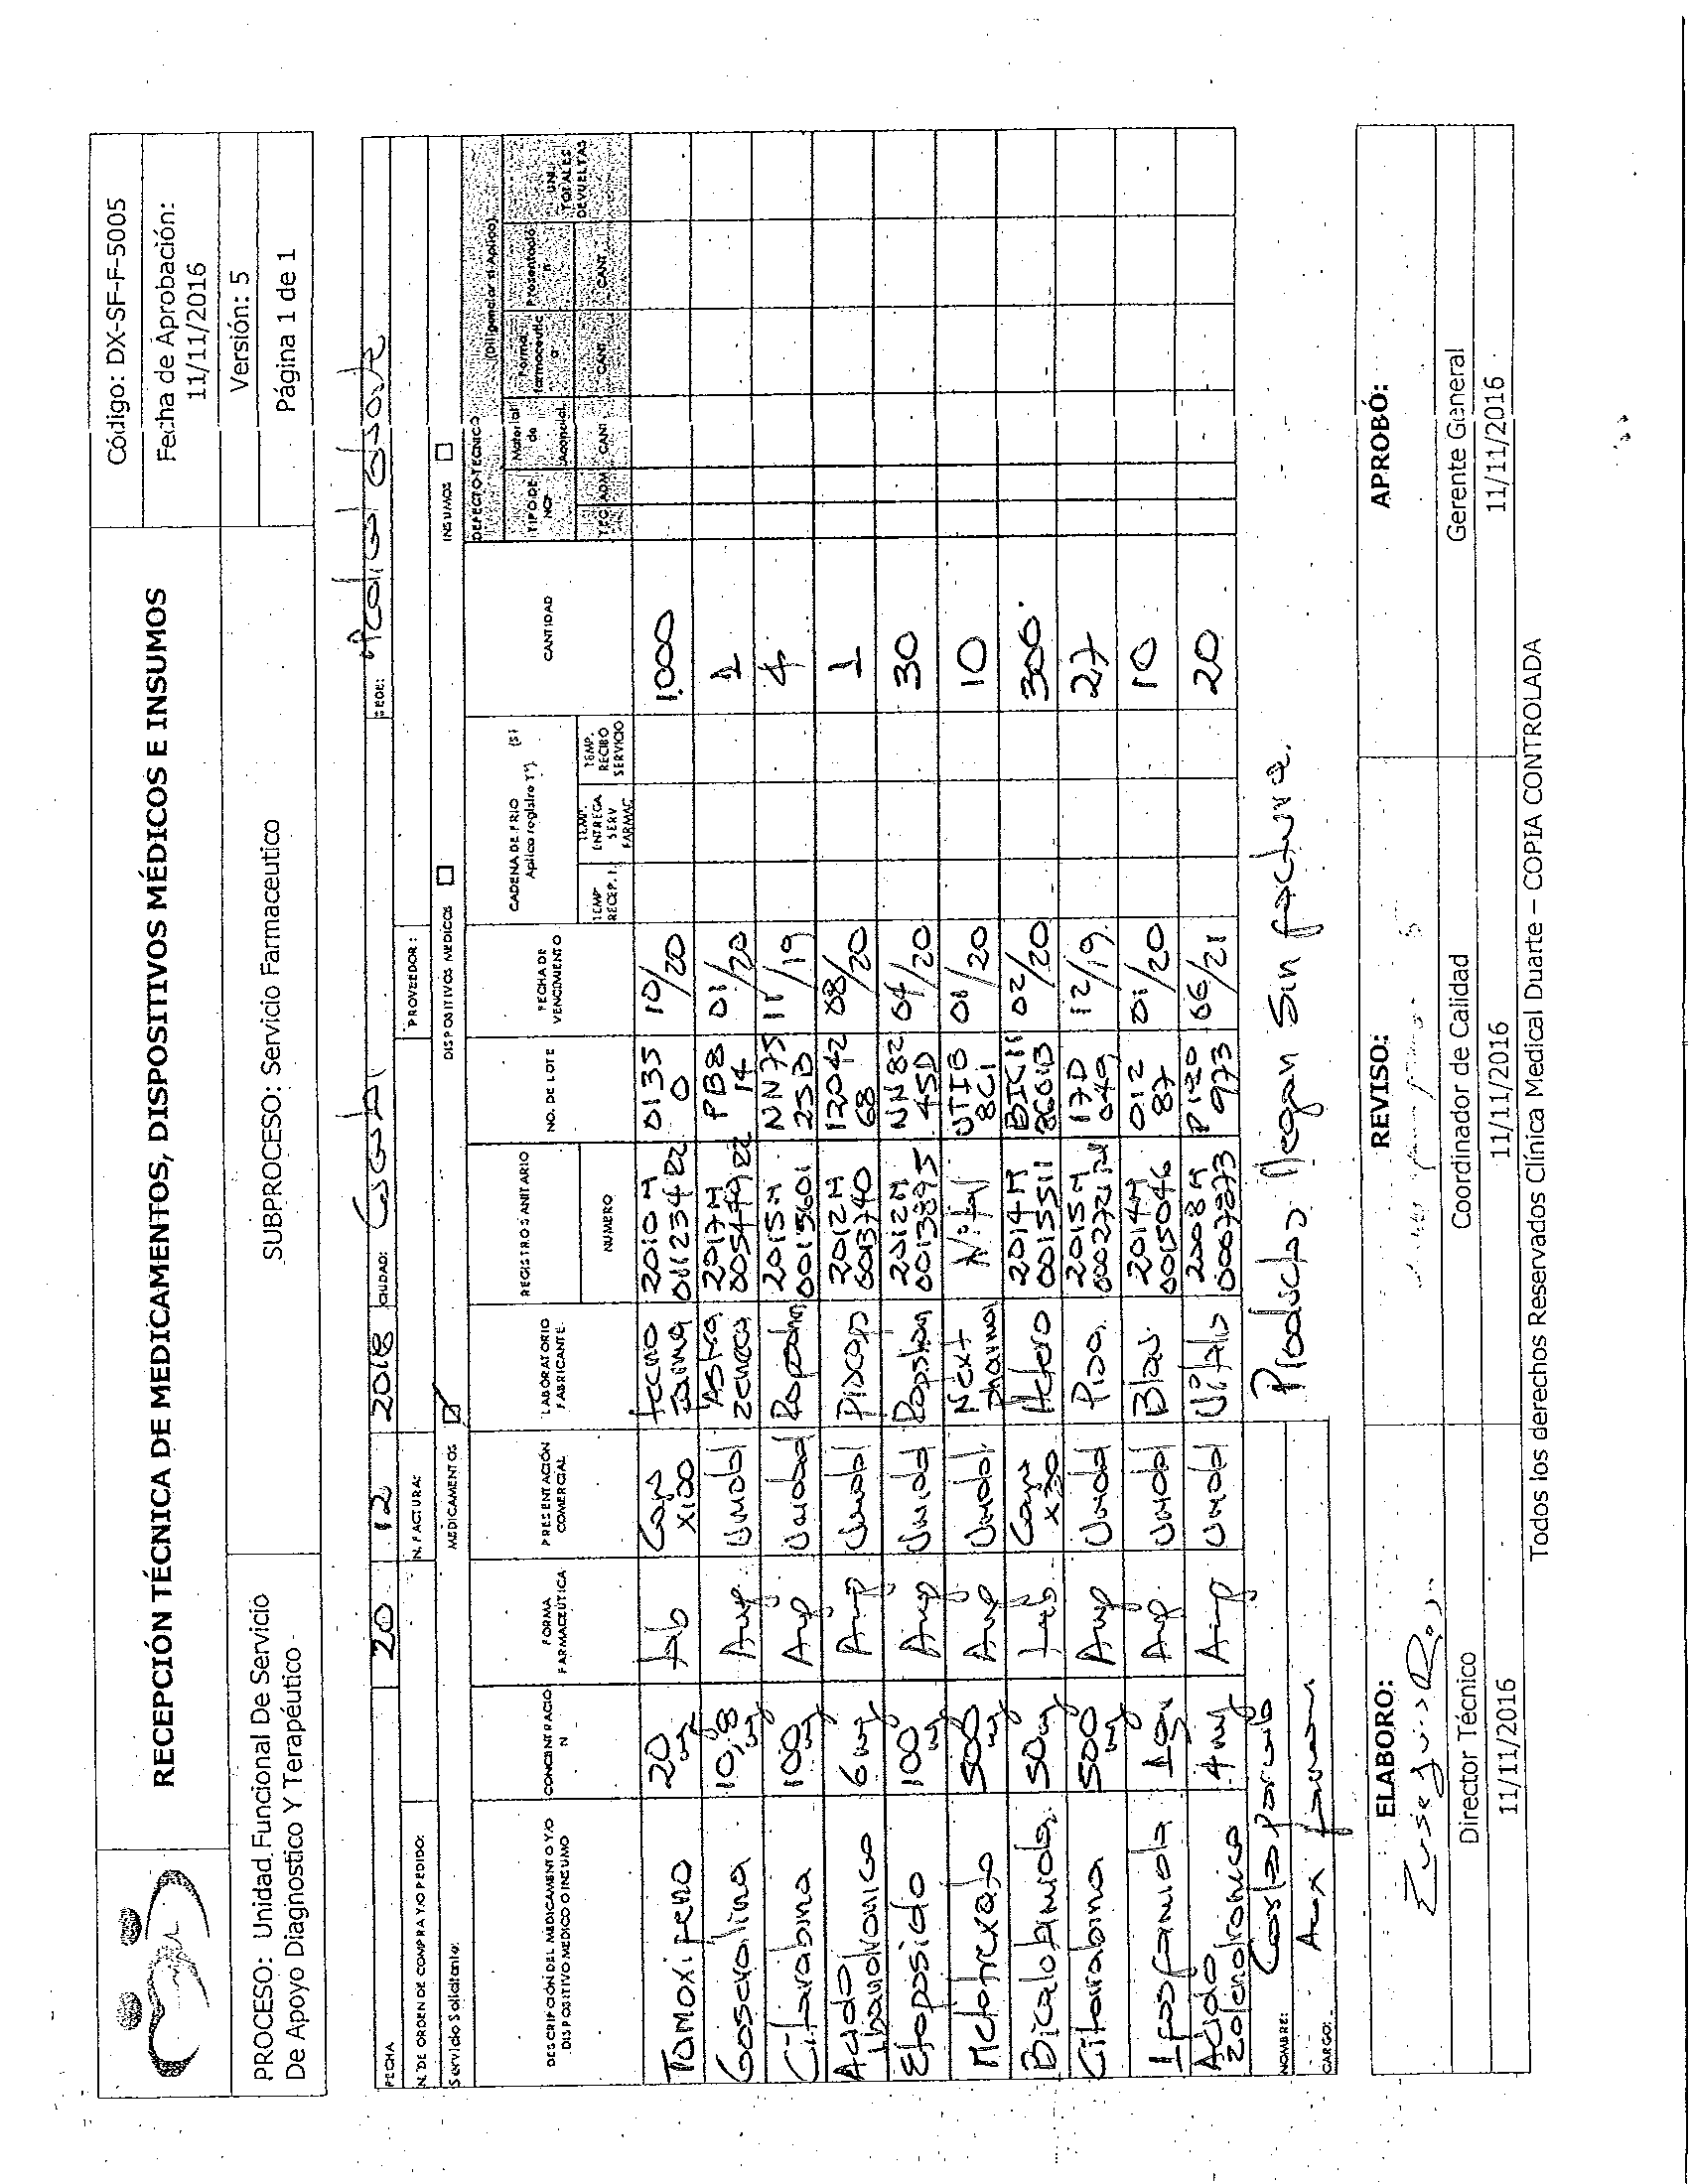 RECEPCIÓN TÉCNICA DE MEDICAMENTOS, DISPOSITIVOS MÉDICOS E INSUMOS
Código: DX-SF-F-5005
Fecha de Aprobación:
11/11/2016
Versión: 5
Página 1 de 1
PROCESO: Unidad Funcional De Servicio
De Apoyo Diagnostico Y Terapéutico
SUBPROCESO: Servicio Farmaceutico
FECHA 20 12 2018 CIUDAD: SEDE:
N. DE ORDEN DE COMPRA Y/O PEDIDO: N. FACTURA: PROVEEDOR:
Servicio Solicitante: MEDICAMENTOS DISPOSITIVOS MEDICOS INSUMOS
DESCRIPCIÓN DEL MEDICAMENTO Y/O DISPOSITIVO MEDICO O INSUMO
CONCENTRACION
FORMA FARMACEUTICA
PRESENTACIÓN COMERCIAL
LABORATORIO FABRICANTE
REGISTRO SANITARIO
NUMERO
NO. DE LOTE
FECHA DE VENCIMIENTO
CADENA DE FRIO (Si Aplica registre Tº)
TEMP RECEP.
TEMP. ENTREGA SERV FARMAC
TEMP. RECIBO SERVICIO
CANTIDAD
DEFECTO TECNICO (Diligenciar si Aplica)
TIPO DE NC
TEC ADM
Material de Acondici.
Forma farmaceutica
Presentación
CANT CANT CANT
UNI TOTALES DEVUELTAS
Tamoxifeno 20 mg tab Caja x100 tecno farma 2010M 01350 10/20 1000
Gosorolina 10,8 mg Amp Unidad Astra zeneca 2017M PB814 01/20 1
Citarabina 100 mg Amp Unidad Ropsohn 2015M 0015601 NN7525D 11/19 4
Acido Ibandronico 6 mg Amp Unidad 2012M 0013740 1204268 08/20 1
Etoposido 100 mg Amp Unidad Ropsohn 2012M 0013895 NN8245D 04/20 30
Metotrexato 500 mg Amp Unidad Next pharma Vital 01/20 10
Bicalutamida 50 mg tab Caja x30 Hetero 2014M 0015511 02/20 300
Citarabina 500 mg Amp Unidad Pisa 2015M 17D049 12/19 27
Ifosfamida 1gr Amp Unidad Blau 2014M 0015046 01287 01/20 10
Acido zolendronico 4 mg Amp Unidad Vitalis 2008M 0007873 06/21 20
NOMBRE:
CARGO: Aux
Productos llegan Sin factura.
ELABORO: REVISO: APROBÓ:
Director Técnico Coordinador de Calidad Gerente General
11/11/2016 11/11/2016 11/11/2016
Todos los derechos Reservados Clínica Medical Duarte – COPIA CONTROLADA